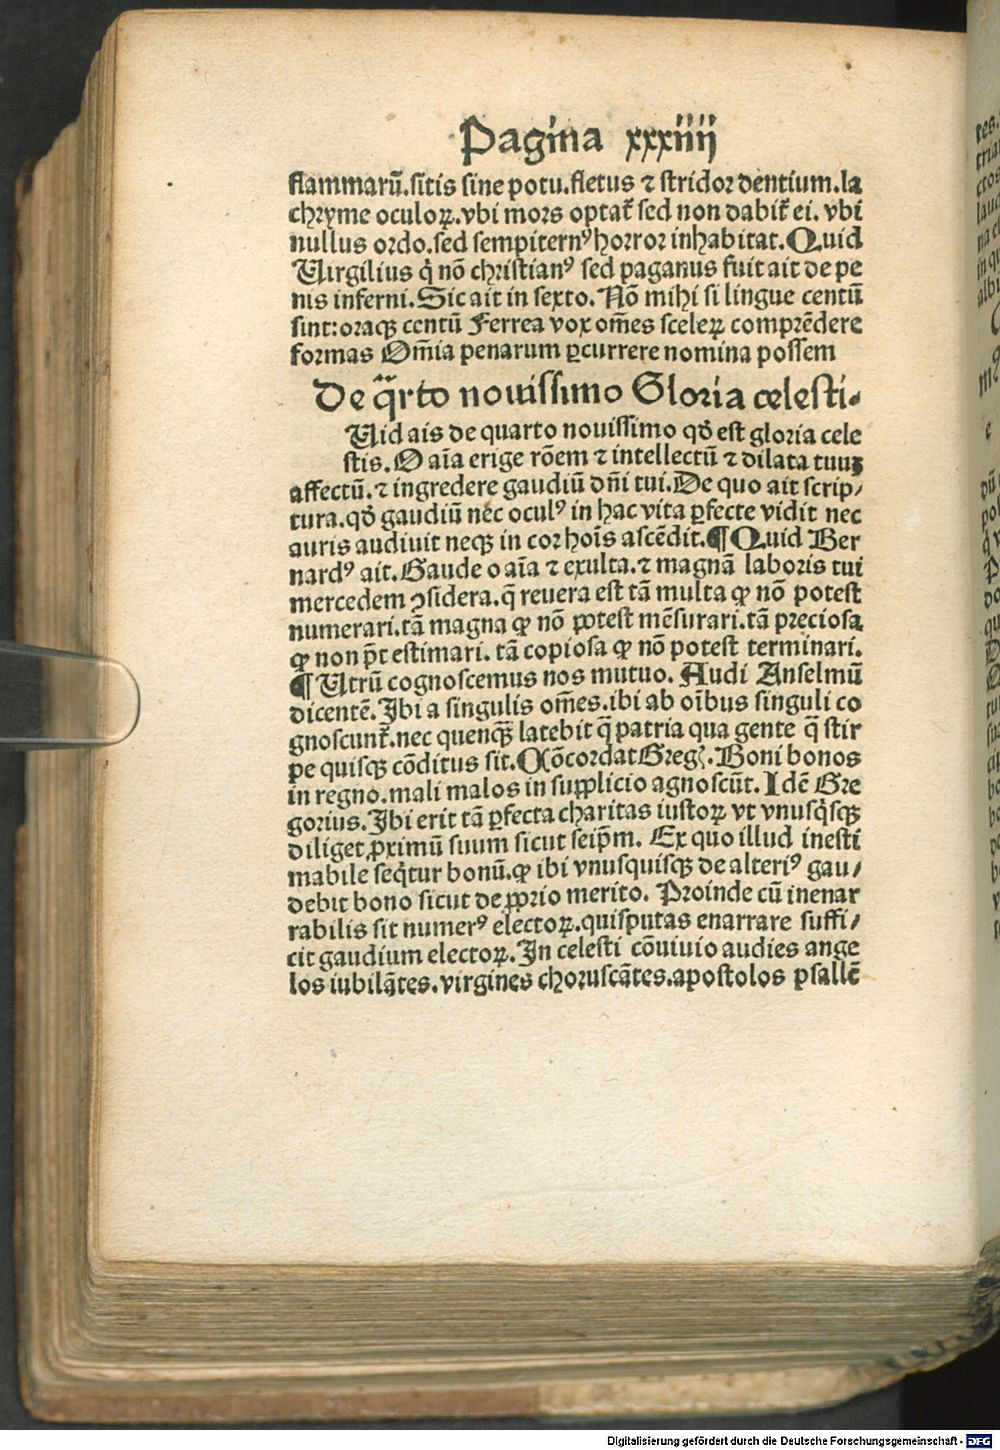 Pagina xxxiiij
flammarū.sitis sine potu.fletus ⁊ stridor dentium.la
chryme oculoꝝ.vbi mors optat᷑ sed non dabit᷑ ei. vbi
nullus ordo.sed sempiternꝰ horror inhabitat.Quid
Uirgilius q̇ nō christianꝰ sed paganus fuit ait de pe
nis inferni.Sic ait in sexto.Nō mihi si lingue centū
sint:oraqꝫ centū Ferrea vox om̄es sceleꝝ comprēdere
formas Om̄ia penarum ꝑcurrere nomina possem
De qͣrto nouissimo Gloria celesti.
Uid ais de quarto nouissimo qđ est gloria cele
stis.O aīa erige rōem ⁊ intellectū ⁊ dilata tuuꝫ
affectū.⁊ ingredere gaudiū dn̄i tui.De quo ait scrip/
tura.qđ gaudiū nec oculꝰ in hac vita ꝑfecte vidit nec
auris audiuit neqꝫ in cor hoīs ascēdit.¶ Quid Ber
nardꝰ ait.Gaude o aīa ⁊ exulta.⁊ magnā laboris tui
mercedem ꝯsidera.q̄ reuera est tā multa ꝙ nō potest
numerari.tā magna ꝙ nō potest mēsurari.tā preciosa
ꝙ non p̄t estimari. tā copiosa ꝙ nō potest terminari.
¶ Utrū cognoscemus nos mutuo. Audi Anselmū
dicentē.Ibi a singulis om̄es.ibi ab oībus singuli co
gnoscunt᷑.nec quenqꝫ latebit q̄ patria qua gente q̄ stir
pe quisqꝫ cōditus sit.Cōcordat Greg.Boni bonos
in regno.mali malos in supplicio agnoscūt.Idē Gre
gorius.Ibi erit tā ꝑfecta charitas iustoꝝ vt vnusq̇sqꝫ
diliget ꝓximū suum sicut seip̄m. Ex quo illud inesti
mabile seq̇tur bonū.ꝙ ibi vnusquisqꝫ de alteriꝰ gau/
debit bono sicut de ꝓprio merito. Proinde cū inenar
rabilis sit numerꝰ electoꝝ.quis putas enarrare suffi/
cit gaudium electoꝝ.In celesti cōuiuio audies ange
los iubilātes.virgines choruscātes.apostolos psallē
Digitalisierung gefördert durch die Deutsche Forschungsgemeinschaft - DFG